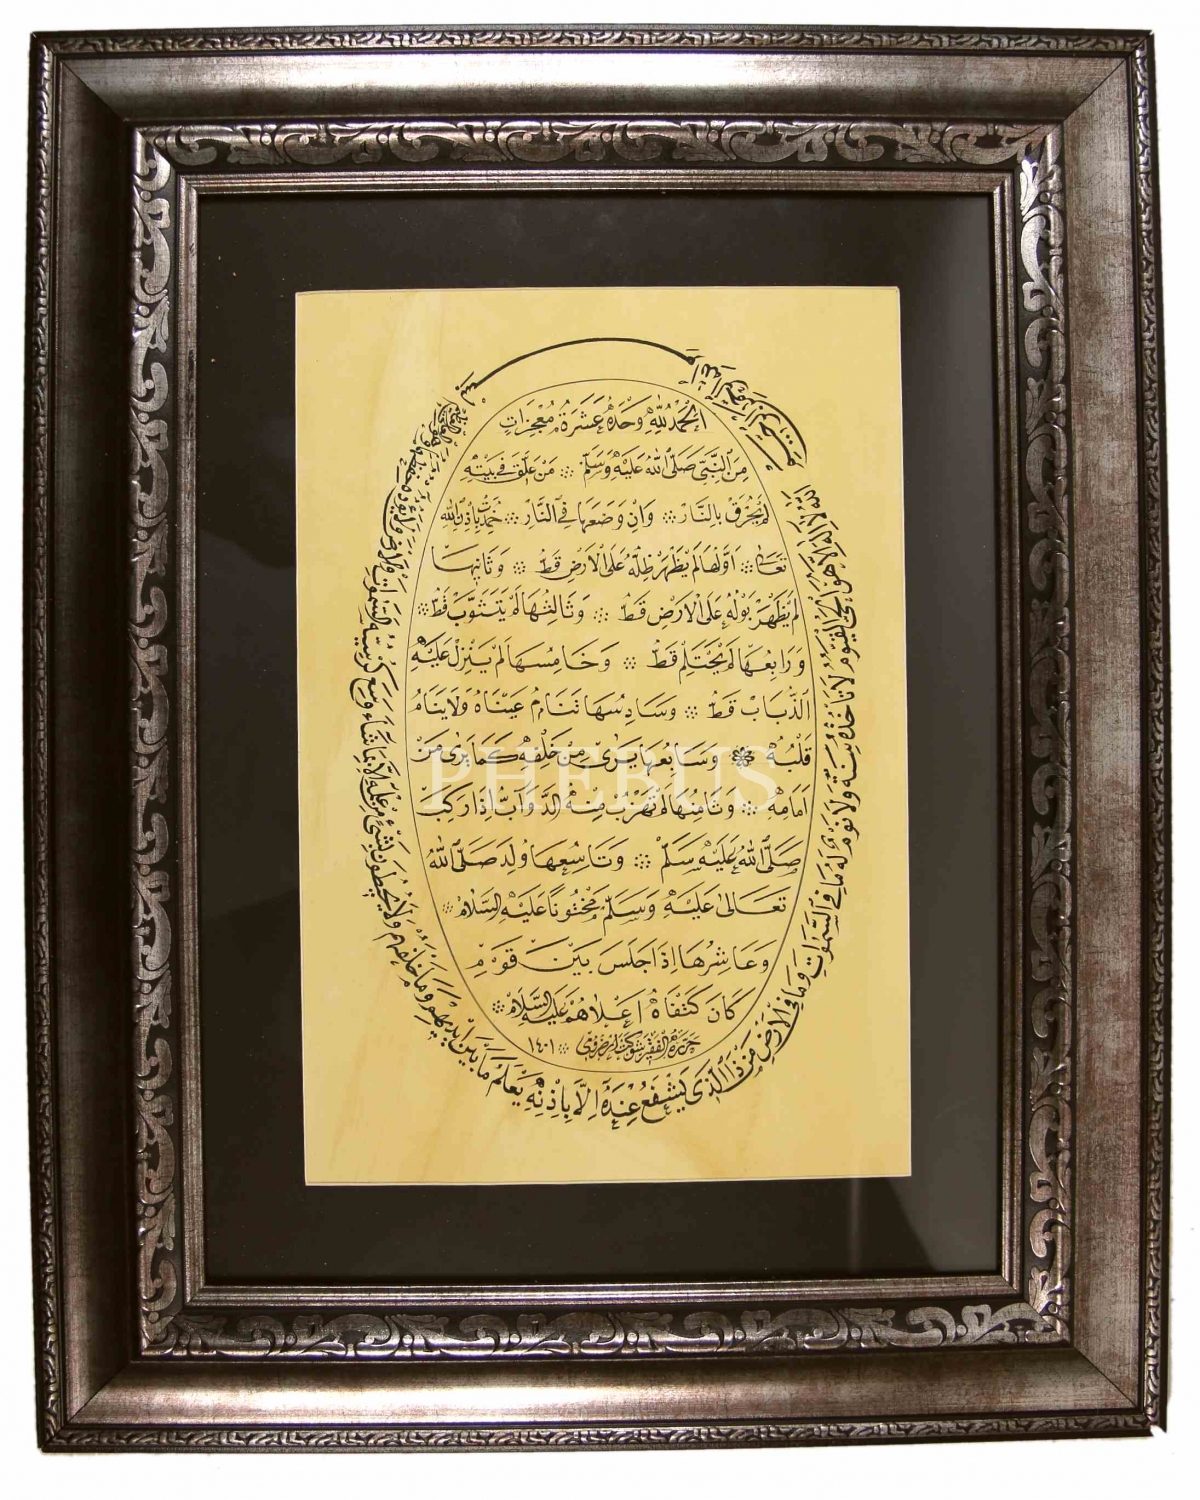 بسم الله الرحمن الرحيم
الله لا اله الا هو الحي القيوم لا تأخذه سنة ولا نوم له ما في السموات وما في الارض من ذا الذى يشفع عنده الا باذنه يعلم ما بين ايديهم وما خلفهم ولا يحيطون بشئ من علمه الا بما شاء وسع كرسيه السموات والارض ولا يؤده حفظهما وهو العلى العظيم
الحمد لله وحده عشرة معجزات
من النبي صلى الله عليه وسلم من علق في بيته
لم يحرق بالنار وان وضعها في النار خمدت باذن الله
تعالى اولها لم يظهر ظله على الارض قط وثانيها
لم يظهر بوله على الارض قط وثالثها لم يتثوب قط
ورابعها لم يحتلم قط وخامسها لم ينزل عليه
الذباب قط وسادسها تنام عيناه ولا ينام
قلبه وسابعها يرى من خلفه كما يرى من
امامه وثامنها لم تهرب منه الدواب اذا ركب
صلى الله عليه وسلم وتاسعها ولد صلى الله
تعالى عليه وسلم مختونا عليه السلام
وعاشرها اذا جلس بين قوم
كان كتفاه اعلاهم عليه السلام
حرره الفقير ١٤٠١
PHEBUS